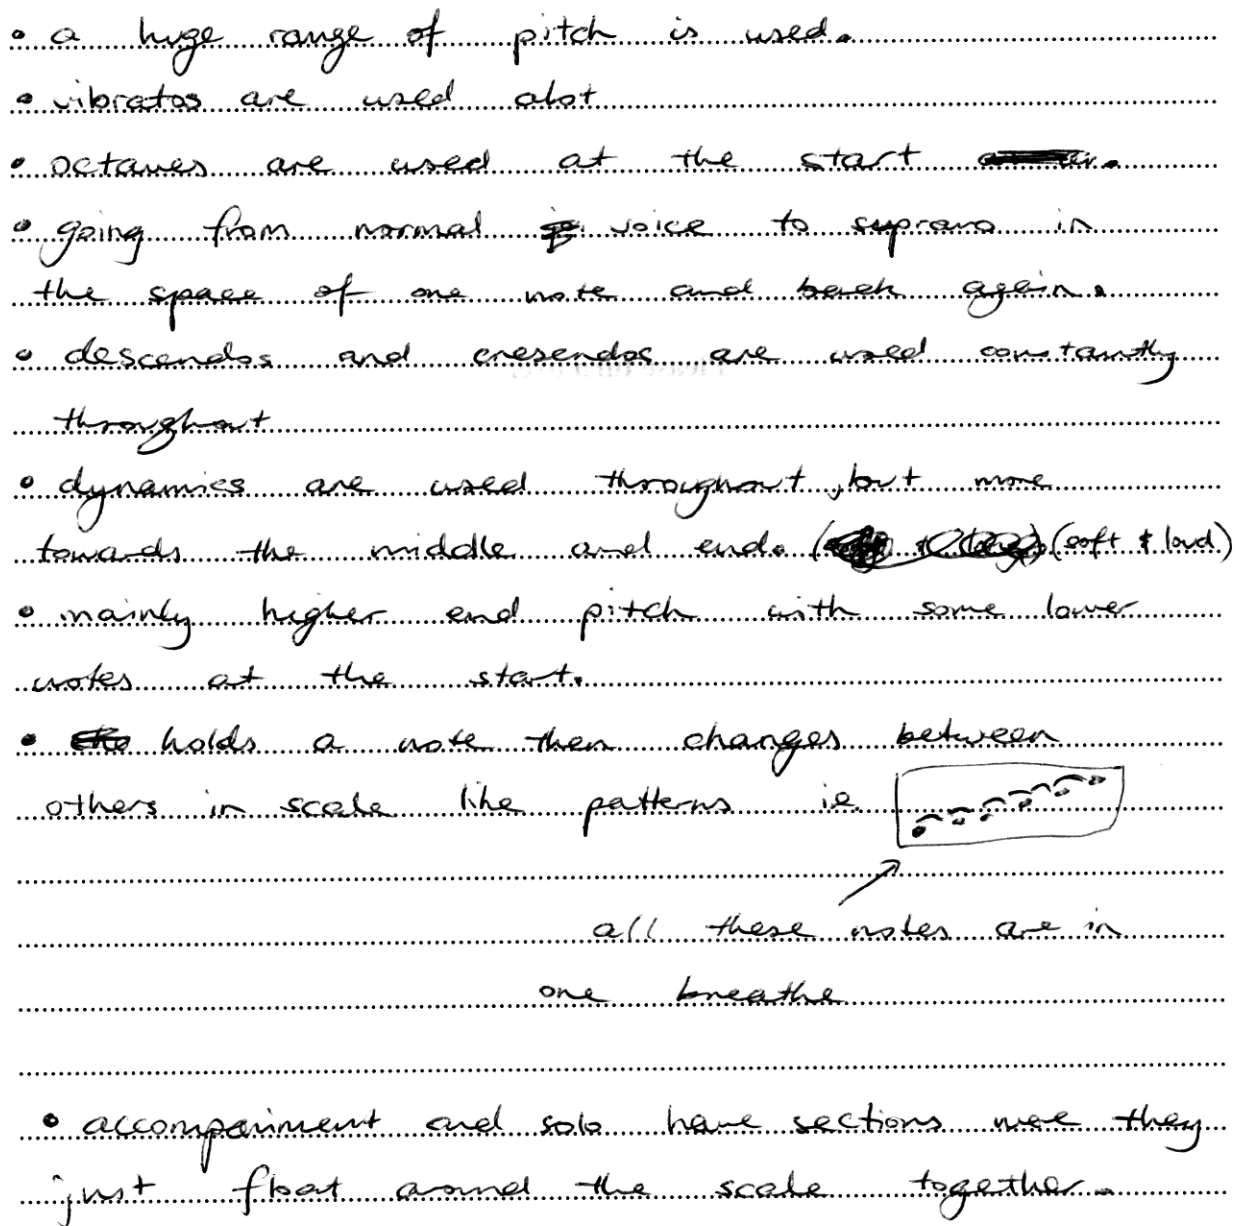 • a huge range of pitch is used.
• vibratos are used alot
• octaves are used at the start
• going from normal voice to suprano in
the space of one note and back again.
• descendos and cresendos are used constantly
throughout
• dynamics are used throughout, but more
towards the middle and end. (soft & loud)
• mainly higher end pitch with some lower
notes at the start.
• holds a note then changes between
others in scale like patterns ie.
all these notes are in
one breathe
• accompaniment and solo have sections were they
just float around the scale together.